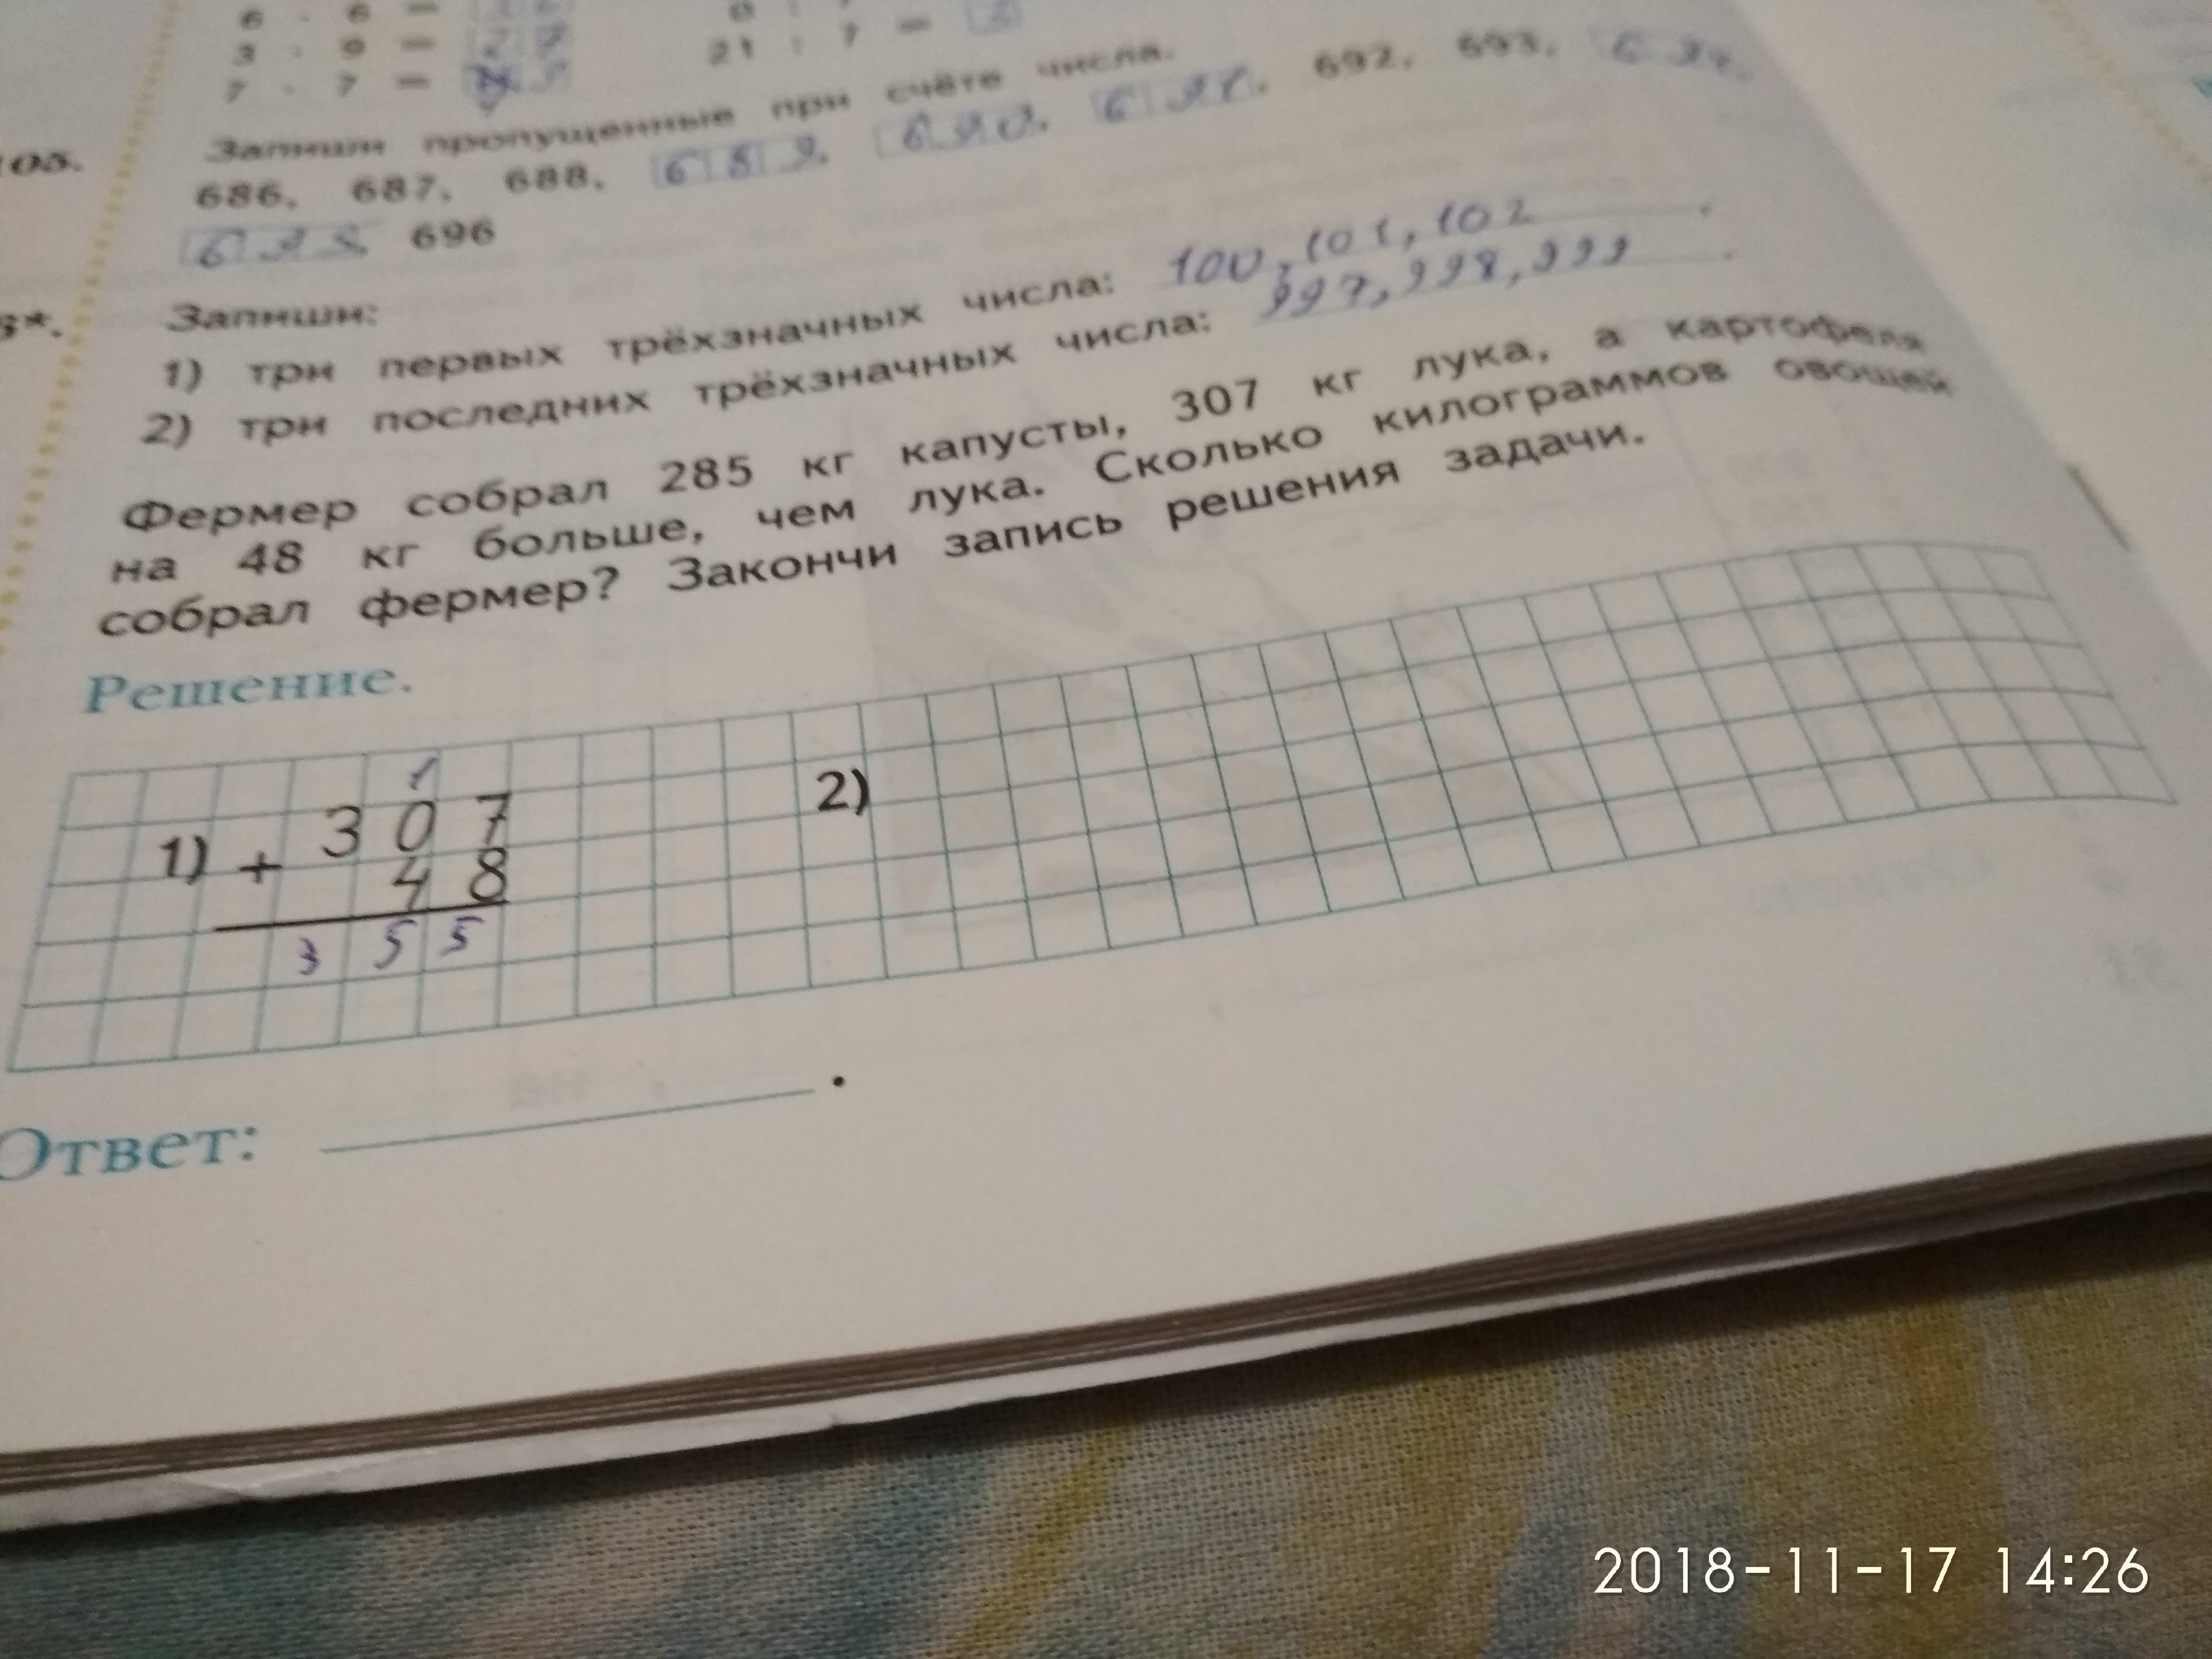 6 · 6 =
3 · 9 = 27
21 : 7 = 3
7 · 7 =
105.
Запиши пропущенные при счёте числа.
686, 687, 688, 689, 690, 691, 692, 693, 694,
695, 696
6*.
Запиши:
1) три первых трёхзначных числа: 100, 101, 102.
2) три последних трёхзначных числа: 997, 998, 999.
Фермер собрал 285 кг капусты, 307 кг лука, а картофеля
на 48 кг больше, чем лука. Сколько килограммов овощей
собрал фермер? Закончи запись решения задачи.
Решение.
1
1) + 307
48
355
2)
Ответ: .
2018-11-17 14:26